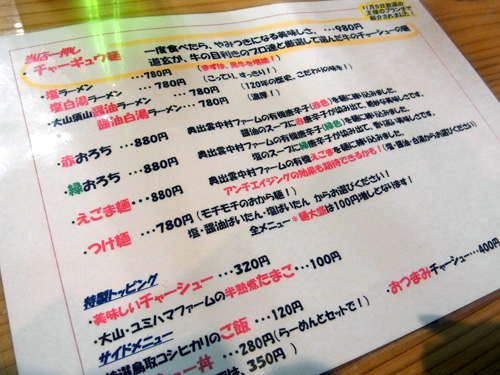 11月5日放送の
王様のブランチで
紹介されました!
当店一押し 一度食べたら、やみつきになる美味しさ。…980円
チャーギュウ麺 道玄が、牛の目利きのプロ達と厳選して選んだ牛のチャーシューの麺
・塩ラーメン…780円 (まずは、黒牛を堪能!)
・塩白湯ラーメン…780円 (こってり、すっきり!)
・大山頂山醤油ラーメン…780円 (120年の歴史、こだわりの味を!)
・醤油白湯ラーメン…780円 (濃厚!)
・赤おろち…880円 奥出雲中村ファームの有機唐辛子(赤色)を麺に練り込みました。
醤油のスープに赤唐辛子が染み出て、絶妙な美味さです。
・緑おろち…880円 奥出雲中村ファームの有機唐辛子(緑色)を麺に練り込みました。
塩のスープに緑唐辛子が染み出て、香り高い美味しさです。
・えごま麺…880円 奥出雲中村ファームの有機えごまを麺に練り込みました。
アンチエイジングの効果も期待できるかも!(塩・醤油・白湯からお選びください)
・つけ麺…780円(モチモチのおから麺!)
塩・醤油ぱいたん・塩ぱいたん からお選びください!
全メニュー*麺大盛は100円増しとなります!
特製トッピング
・美味しいチャーシュー…320円
・大山・ユミハマファームの半熟煮たまご…100円
・おつまみチャーシュー…400円
サイドメニュー
特選鳥取コシヒカリのご飯…120円
シュー丼…280円(らーめんとセットで!)
は、350円)